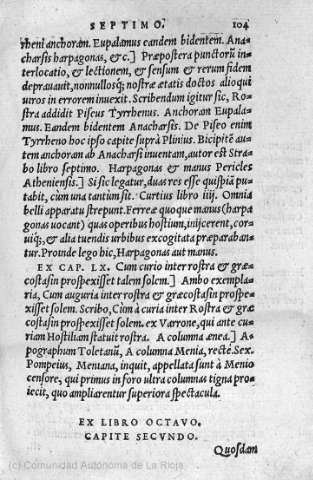 SEPTIMO. 104
rheni anchoram. Eupalamus eandem bidentem. Ana-
charsis harpagonas, &c.] Præpostera punctorũ in-
terlocatio, & lectionem, & sensum & rerum fidem
deprauauit, nonnullosq; nostræ ætatis doctos alioqui
uiros in errorem inuexit. Scribendum igitur sic, Ro-
stra addidit Piseus Tyrrhenus. Anchoram Eupala-
mus. Eandem bidentem Anacharsis. De Piseo enim
Tyrrheno hoc ipso capite suprà Plinius. Bicipitẽ au-
tem anchoram ab Anacharsi inuentam, autor est Stra-
bo libro septimo. Harpagonas & manus Pericles
Atheniensis.] Si sic legatur, duas res esse quispiã pu-
tabit, cùm una tantùm sit. Curtius libro iiij. Omnia
belli apparatu strepunt. Ferreæ quoque manus (harpa
gonas uocant) quas operibus hostium, inijcerent, cor-
uiq;, & alia tuendis urbibus excogitata præparaban-
tur. Proinde lego hic, Harpagonas aut manus.
EX CAP. LX. Cum curio inter rostra & græ-
costasin prospexisset talem solem.] Ambo exempla-
ria, Cum auguria inter rostra & græcostasin prospe-
xisset solem. Scribo, Cùm à curia inter Rostra & græ-
costasin prospexisset solem. ex Varrone, qui ante cu-
riam Hostiliam statuit rostra. A columna ænea.] A-
pographum Toletanũ, A columna Menia, rectè. Sex.
Pompeius, Meniana, inquit, appellata sunt à Menio
censore, qui primus in foro ultra columnas tigna pro-
iecit, quo ampliarentur superiora spectacula.
EX LIBRO OCTAVO.
CAPITE SECVNDO.
Quosdam
(c) Comunidad Autónoma de La Rioja